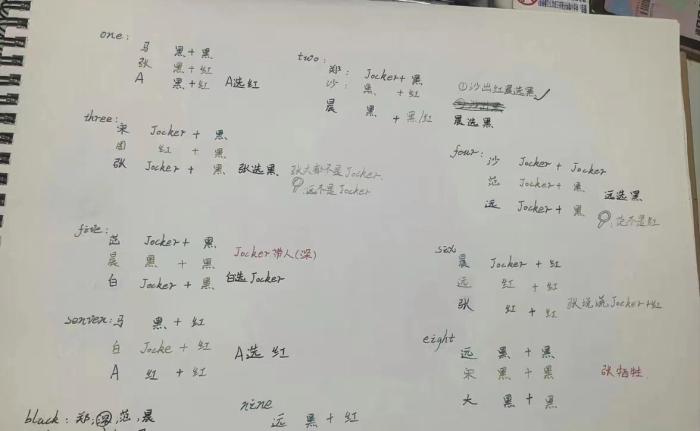 one:
马 黑+黑
张 黑+红
A 黑+红 A选红
two:
郑: Jocker+黑
沙: 黑 +红
晨 黑 +黑/红
①沙出红晨选黑 ✓
晨选黑
three:
宋 Jocker + 黑
红 + 黑
张 Jocker + 黑 张选黑 张大都不是Jocker
远不是Jocker
four:
沙 Jocker + Jocker
范 Jocker + 黑
远 Jocker + 黑 远选黑
范不是红
five:
范 Jocker + 黑
晨 黑 + 黑
白 Jocker + 黑 白选Jocker
Jocker带人(深)
six
晨 Jocker + 红
远 红 + 红
张 红 + 红 张说流Jocker+红
senven: 马 黑 + 红
白 Jocke + 红
A 红 + 红 A选红
eight
远 黑 + 黑
宋 黑 + 黑 张牺牲
大 黑 + 黑
nine
远 黑 + 红
black: 郑, 范, 晨